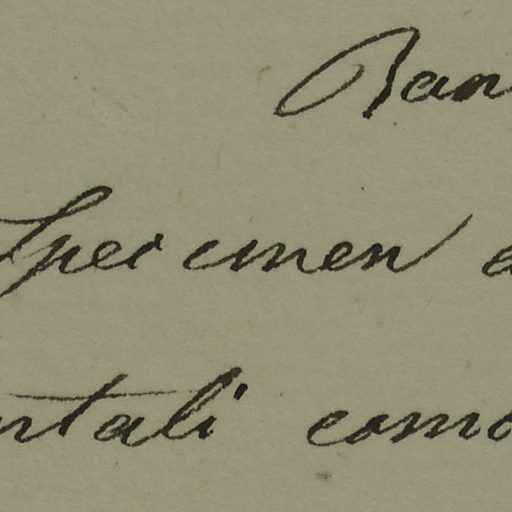 Ban
Specimen e
ntali como